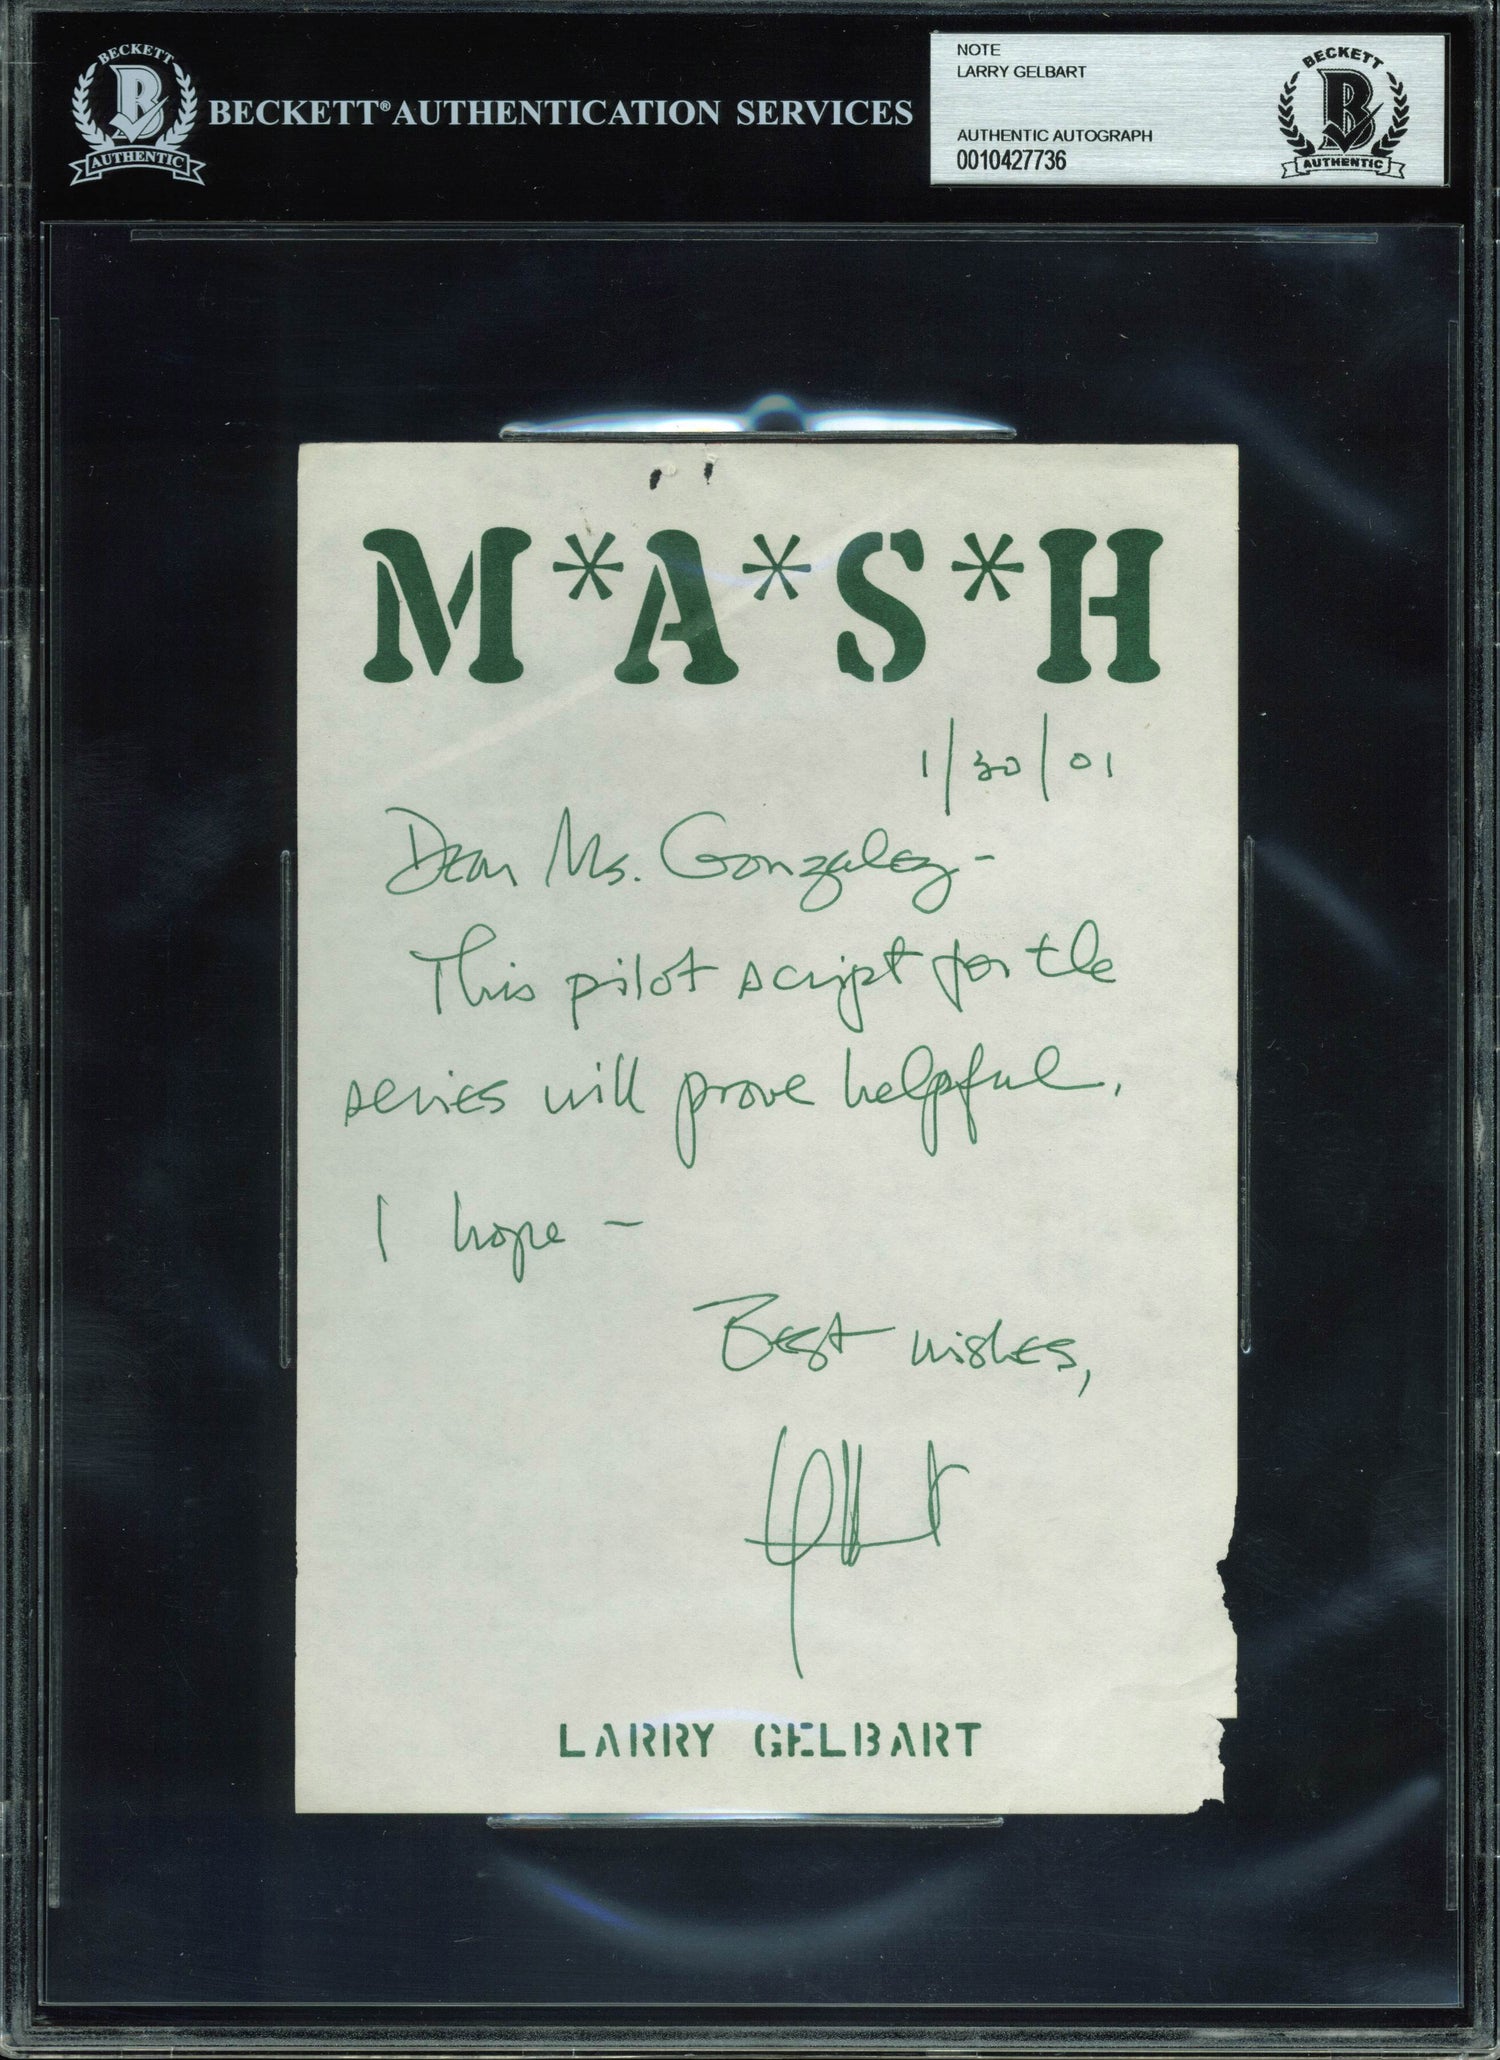 BECKETT
B
AUTHENTIC
BECKETT® AUTHENTICATION SERVICES
NOTE
LARRY GELBART
AUTHENTIC AUTOGRAPH
0010427736
BECKETT
B
AUTHENTIC
M*A*S*H
1/30/01
Dear Ms. Gonzalez -
This pilot script for the
series will prove helpful.
I hope -
Best wishes,
LARRY GELBART